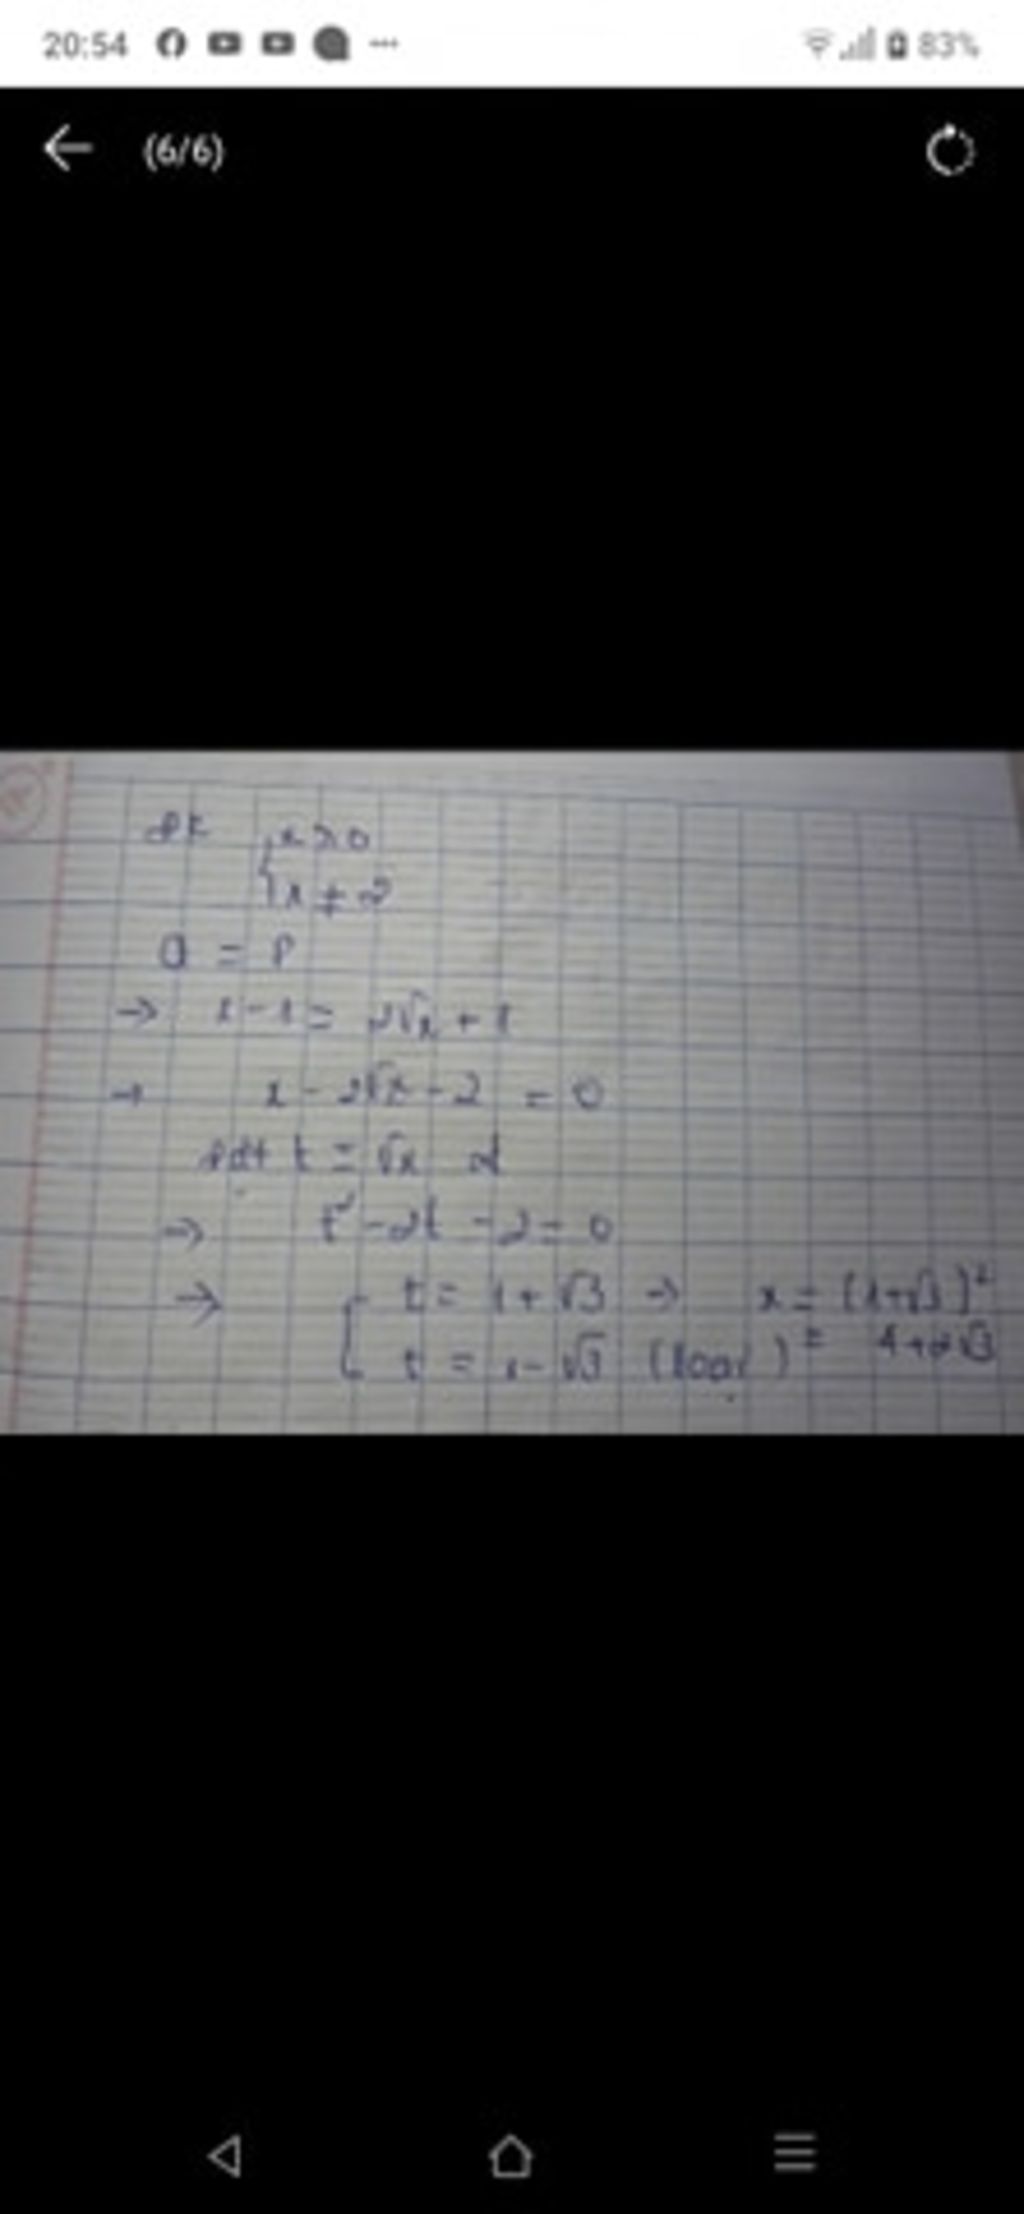 20:54 83%
(6/6)
đk { x > 0
x ≠ 2
Q = P
→ x - 1 = 2√x + 1
→ x - 2√x - 2 = 0
Đặt t = √x
→ t² - 2t - 2 = 0
→ [ t = 1 + √3 → x = (1+√3)²
t = 1 - √3 (loại) = 4+2√3